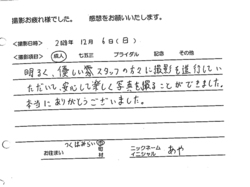 撮影お疲れ様でした。 感想をお願いいたします。
<撮影日時> 年 12月 6日(日)
<撮影項目> 成人 七五三 ブライダル 記念 その他
明るく、優しいスタッフの方々に撮影を進行して
いただいて、安心して楽しく写真を撮ることができました。
本当にありがとうございました。
お住まい つくばみらい 市 町 村 ニックネーム イニシャル あや